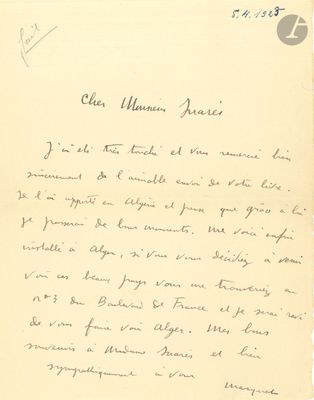 fait
5.4.1925
Cher Monsieur Suarés
J'ai été très touché et vous remercie bien
sincèrement de l'aimable envoi de votre livre.
Je l'ai apporté en Algérie et pense que grâce à lui
je passerai de bons moments. Me voici enfin
installé à Alger, si vous vous décidiez à venir
voir ces beaux pays vous me trouveriez au
n° 3 du Boulevard de France et je serai ravi
de vous faire voir Alger. Mes bons
souvenirs à Madame Suarès et bien
sympathiquement à vous
Marquet